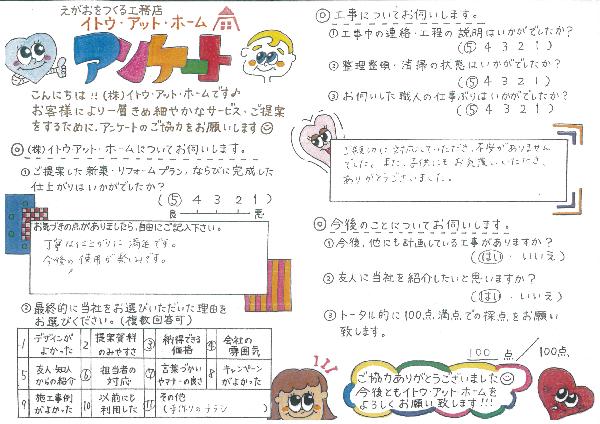 えがおをつくる工務店
イトウ・アット・ホーム
アンケート
こんにちは!!(株)イトウ・アット・ホームです♪
お客様により一層きめ細やかなサービス・ご提案
をするために、アンケートのご協力をお願いします
◎(株)イトウアット・ホームについてお伺いします。
①ご提案した新築・リフォームプラン、ならびに完成した
仕上がりはいかがでしたか?
(⑤ 4 3 2 1)
良 悪
お気づきの点がありましたら、自由にご記入下さい。
丁寧な仕上がりに満足です。
今後の使用が楽しみです。
②最終的に当社をお選びいただいた理由を
お選びください。(複数回答可)
1 デザインがよかった
2 提案資料のみやすさ
③ 納得できる価格
④ 会社の雰囲気
5 友人・知人からの紹介
⑥ 担当者の対応
⑦ 言葉づかいやマナーの良さ
8 キャンペーンがよかった
9 施工事例がよかった
10 以前にも利用した
⑪ その他(手作りのチラシ)
◎工事についてお伺いします。
①工事中の連絡・工程の説明はいかがでしたか?
(⑤ 4 3 2 1)
②整理整頓・清掃の状態はいかがでしたか?
(⑤ 4 3 2 1)
③お伺いした職人の仕事ぶりはいかがでしたか?
(⑤ 4 3 2 1)
に対応していただき、不安がありません
でした。また、子供にもお気遣いいただき、
ありがとうございました。
◎今後のことについてお伺いします。
①今後、他にも計画している工事がありますか?
(はい・いいえ)
②友人に当社を紹介したいと思いますか?
(はい・いいえ)
③トータル的に100点満点での採点をお願い
致します。
100点/100点
ご協力ありがとうございました
今後ともイトウ・アット・ホームを
よろしくお願い致します!!!